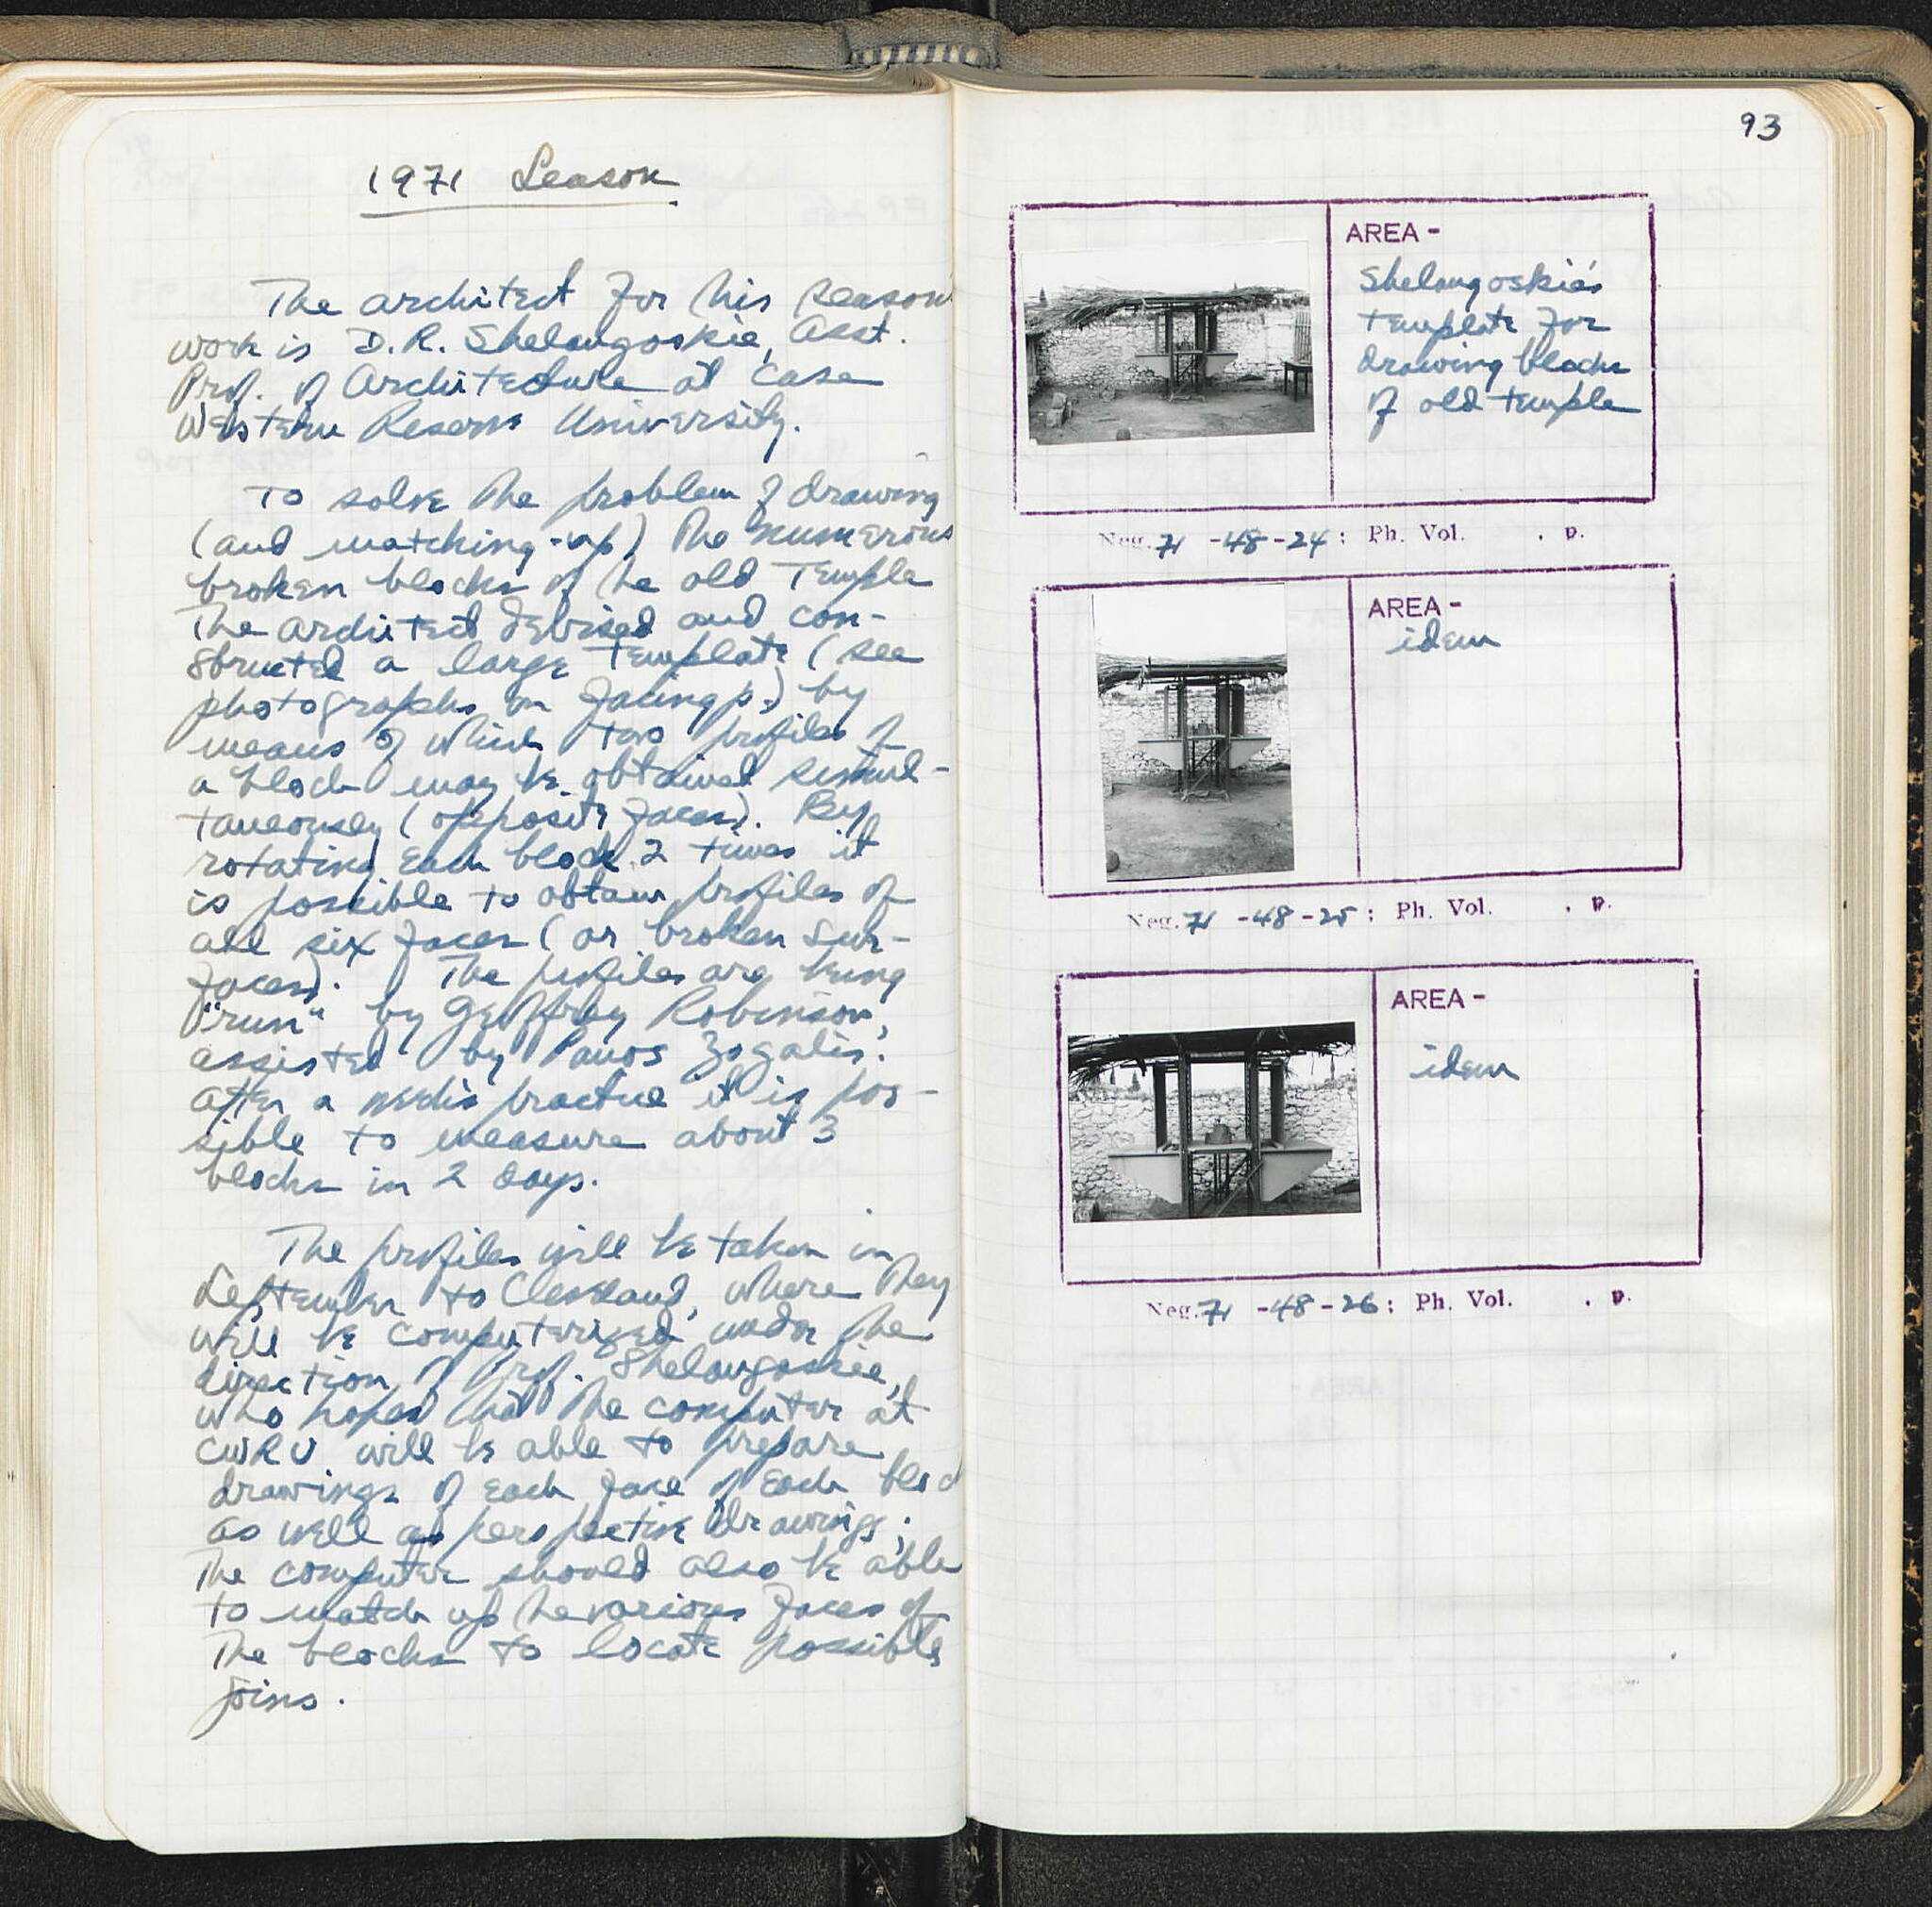 1971 Season
The architect for this season's
work is D.R. Shelangoskie, Asst.
Prof. of Architecture at Case
Western Reserve University.
To solve the problem of drawing
(and matching-up) the numerous
broken blocks of the old Temple
the architect devised and con-
structed a large template (see
photographs on facing p.) by
means of which two profiles of
a block may be obtained simul-
taneously (opposite faces). By
rotating each block 2 times it
is possible to obtain profiles of
all six faces (or broken sur-
faces). The profiles are being
"run" by Geoffrey Robinson,
assisted by Panos Zogalis.
After a week's practice it is pos-
sible to measure about 3
blocks in 2 days.
The profiles will be taken in
September to Cleveland, where they
will be computerized under the
direction of Prof. Shelangoskie,
who hopes that the computer at
CWRU will be able to prepare
drawings of each face of each block
as well as perspective drawings;
The computer should also be able
to match up the various faces of
the blocks to locate possible
joins.
93
AREA -
Shelangoskie's
template for
drawing blocks
of old temple
Neg. 71 -48-24; Ph. Vol. . p.
AREA -
idem
Neg. 71 -48-25; Ph. Vol. . p.
AREA -
idem
Neg. 71 -48-26; Ph. Vol. . p.